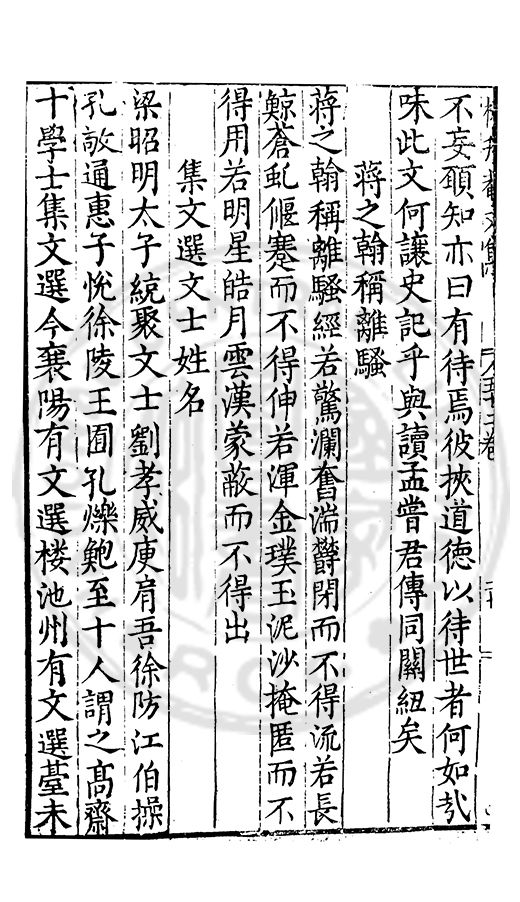 升菴文集
五十二卷
不妄顧知亦曰有待焉彼挾道德以待世者何如㢤
味此文何讓史記乎與讀孟嘗君傳同關紐矣
蔣之翰稱離騷
蔣之翰稱離騷經若驚瀾奮湍欝閉而不得流若長
鯨蒼虬偃蹇而不得伸若渾金璞玉泥沙掩匿而不
得用若明星皓月雲漢蒙蔽而不得出
集文選文士姓名
梁昭明太子統聚文士劉孝威庾肩吾徐防江伯操
孔敬通惠子恱徐陵王囿孔爍鮑至十人謂之髙齋
十學士集文選今襄陽有文選楼池州有文選䑓未